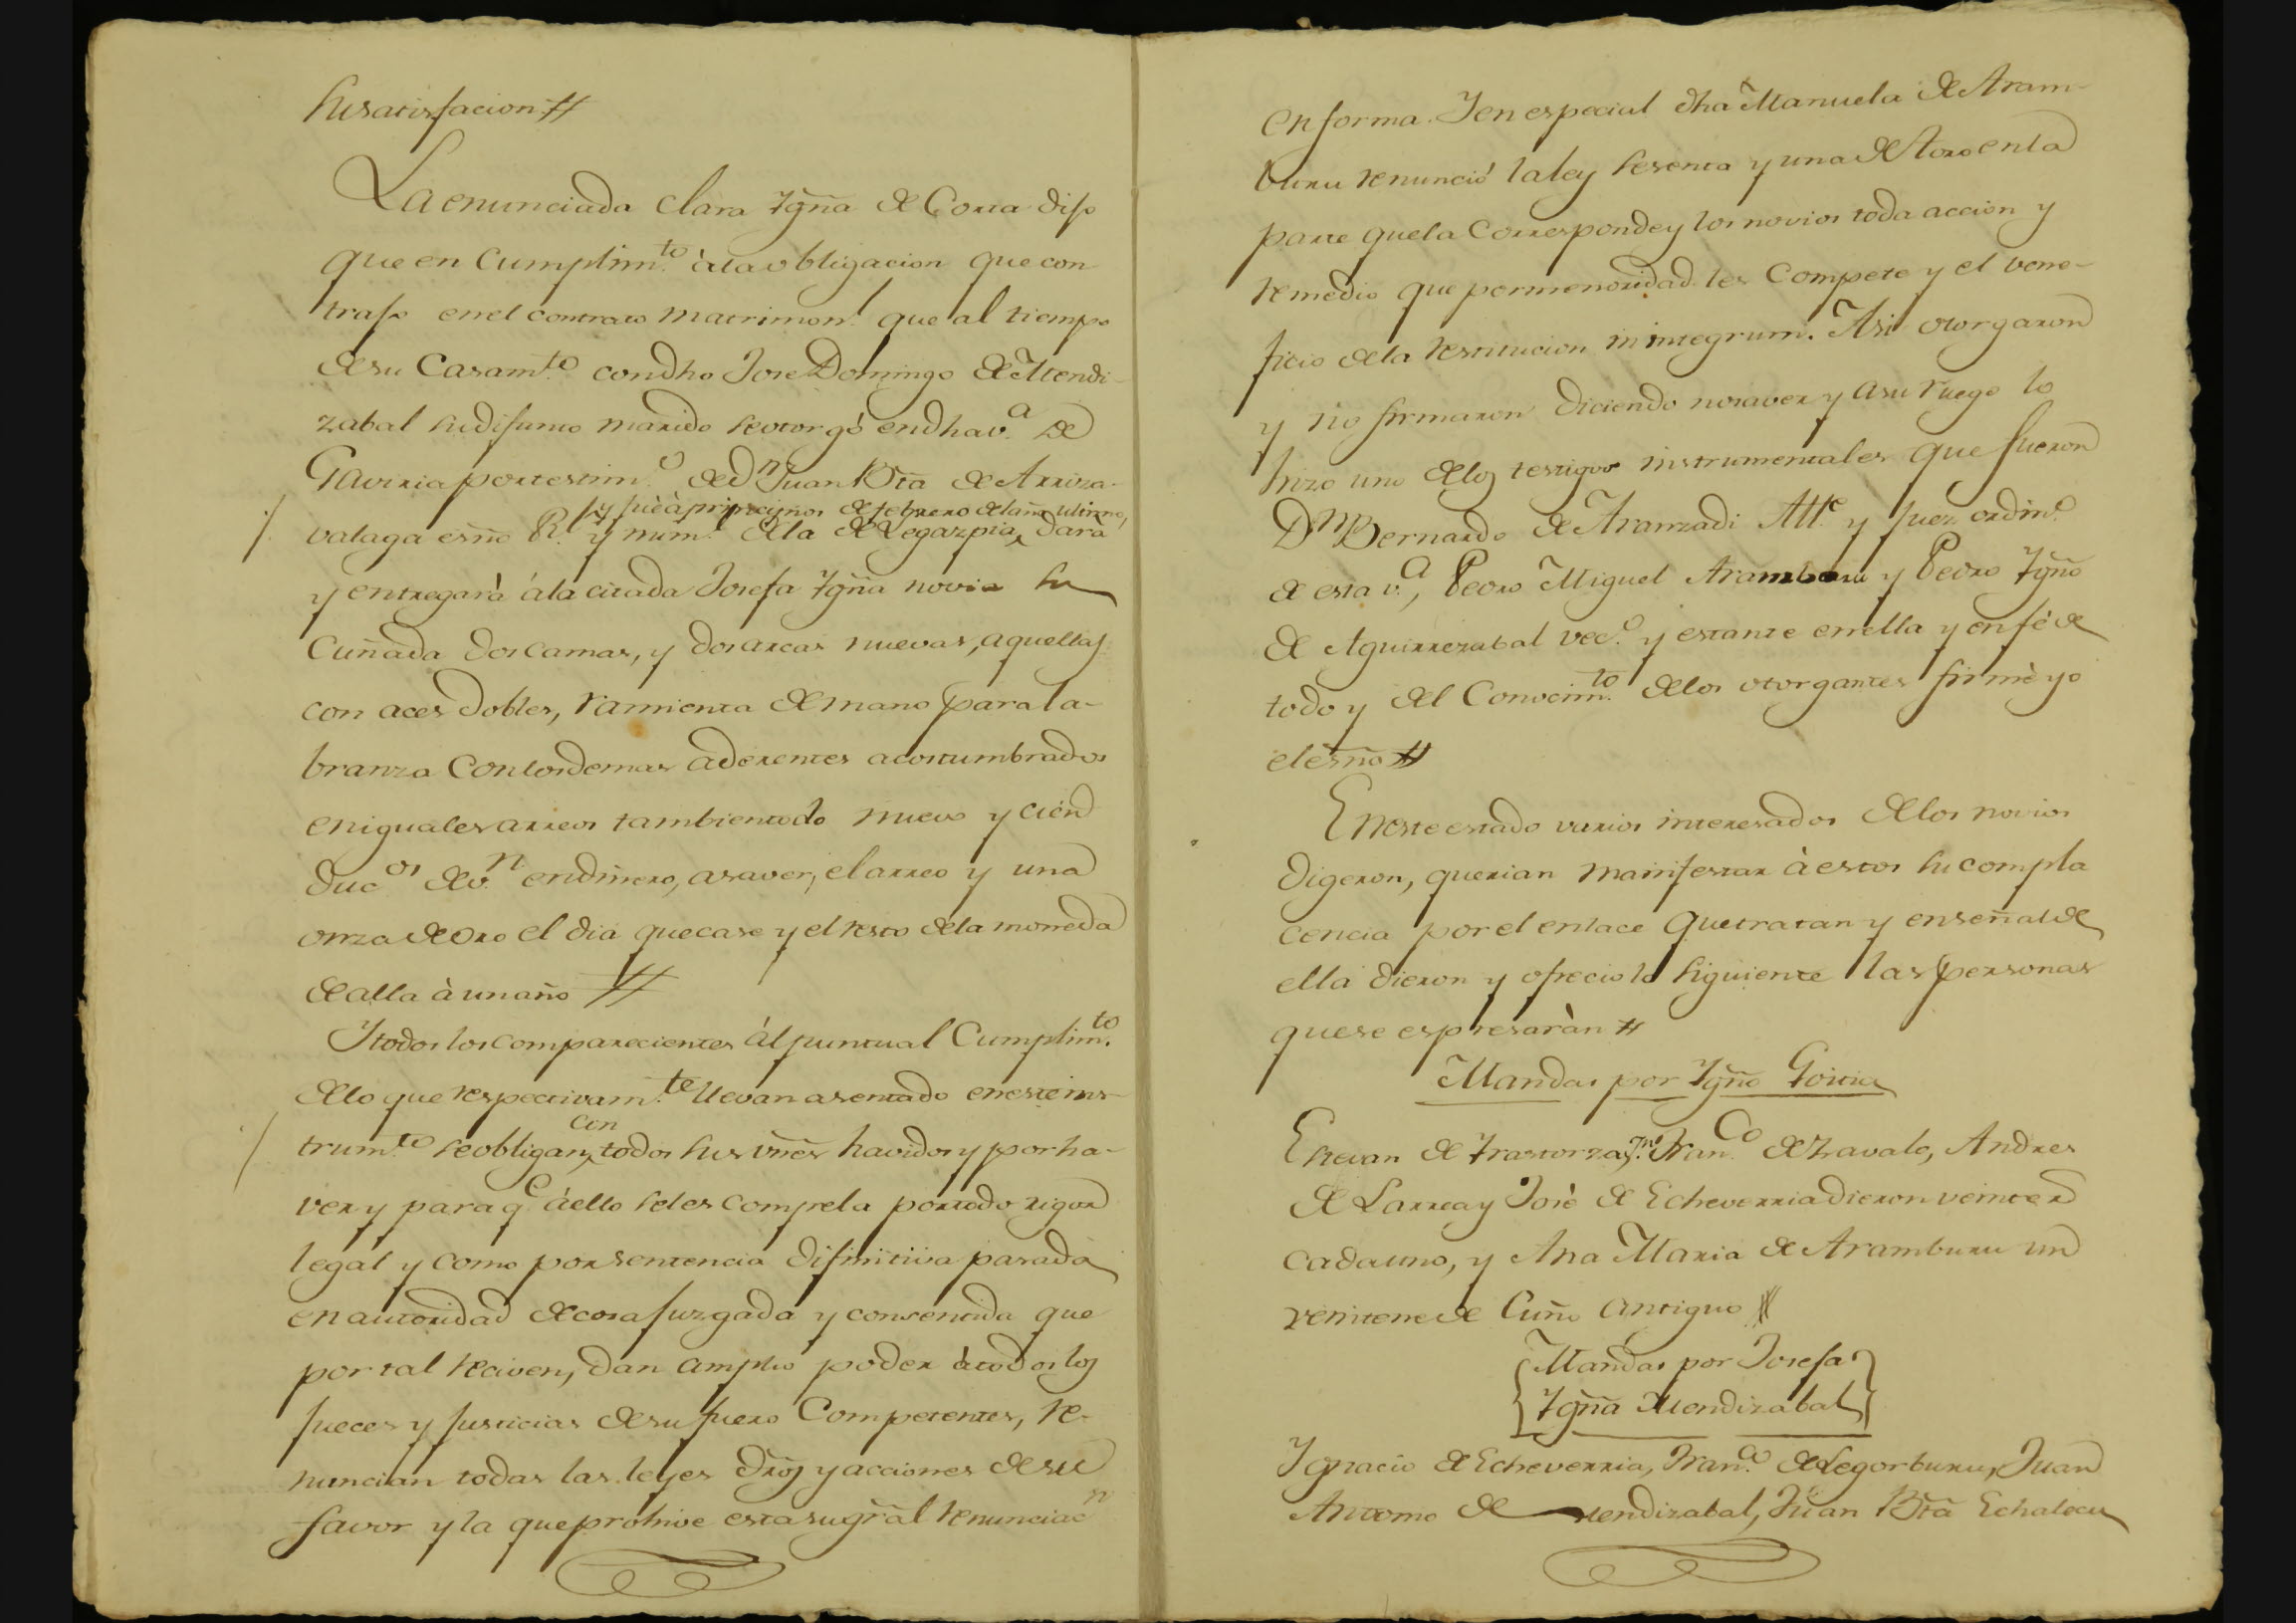 su satisfacion #
La enunciada Clara Ygñã de Corta dijo
que en Cumplim.to à la obligacion que con
trajo en el contrato matrimon.l que al tiempo
de su Casam.to con dho Jose Domingo de Mendi-
zabal su difunto marido se otorgó en dha v.a de
Gaviria por testim.o de d.n Juan Btã de Arriza-
y fuè à principios de febrero del año ultimo,
valaga esño R.l y num.l de la de Legazpia, darà
y entregarà à la citada Josefa Ygñã novia su
Cuñada dos camas, y dos arcas nuevas, aquellas
con aces dobles, ramienta de mano para la-
branza con los demas aderentes acostumbrados
en iguales arreos tambien todo nuevo y cien
duc.os de v.n en dinero, a saver, el arreo y una
onza de oro el dia que case y el resto de la moneda
de alla à un año #
Y todos los comparecientes àl puntual Cumplim.to
de lo que respectivam.te llevan asentado en este ins-
con
trum.to se obligan todos sus vñes havidos y por ha-
ver y para q.e à ello se les compela por todo rigor
legal y como por sentencia difinitiva pasada
en autoridad de cosa juzgada y consentida que
por tal reciven, dan amplio poder à todos los
jueces y justicias de su fuero Competentes, re-
nuncian todas las leyes drõs y acciones de su
favor y la que prohive esta su grãl renunciac.n
en forma. Y en especial dha Manuela de Aram-
buru renunció la ley sesenta y una de Toro en la
parte que la Corresponde y los novios toda accion y
remedio que por menoridad les Compete y el vene-
ficio de la restitucion in integrum. Asi otorgaron
y no firmaron diciendo no saver y a su ruego lo
hizo uno de los testigos instrumentales que fueron
D.n Bernardo de Aranzadi Alt.e y Juez ordin.o
de esta v.a, Pedro Miguel Aramburu y Pedro Ygñõ
de Aguirrezabal vec.o y estante en ella y en fè de
todo y del Conocim.to de los otorgantes firmè yo
el esño #
En este estado varios interesados de los novios
digeron, querian manifestar à estos su compla
cencia por el enlace que tratan y en señal de
ella dieron y ofrecio lo siguiente las personas
que se espresaràn #
Mandas por Ygñõ Goitia
Estevan de Yrastorza, Fran.co de Zavalo, Andres
de Larrea y Josè de Echeverria dieron veinte r.
cada uno, y Ana Maria de Aramburu un
veinten de Cuño antiguo #
Mandas por Josefa
Ygñã Mendizabal
Ygnacio de Echeverria, Fran.co de Legorburu, Juan
Antonio de Mendizabal, Juan Btã Echalecu